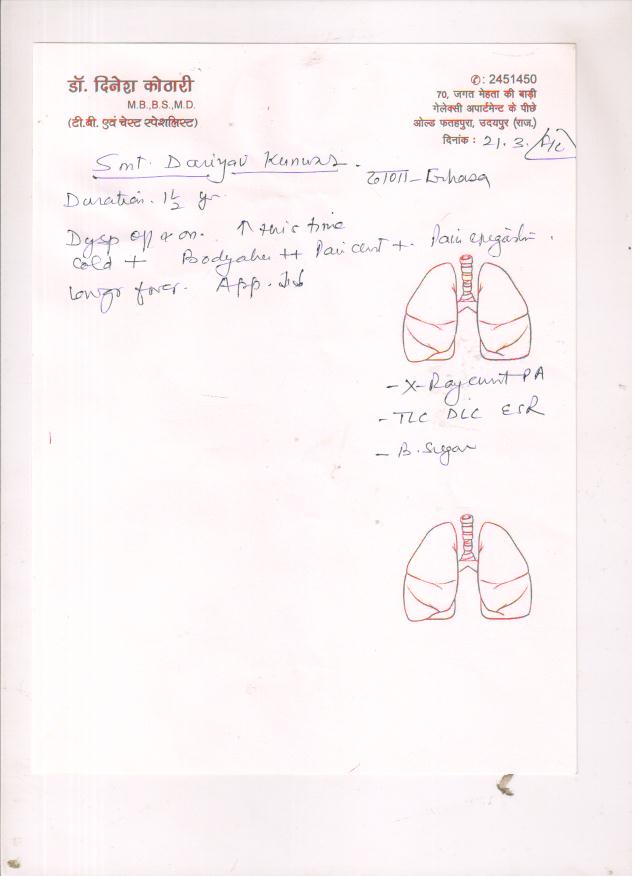 डॉ. दिनेश कोठारी
M.B.,B.S.,M.D.
(टी.बी. एवं चेस्ट स्पेशलिस्ट)
✆: 2451450
70, जगत मेहता की बाड़ी
गेलेक्सी अपार्टमेन्ट के पीछे
ओल्ड फतहपुरा, उदयपुर (राज.)
दिनांक : 21.3.
Smt. Dariyav Kunwar.
Duration. 1½ yr
Dysp off & on. ↑ this time
Cold + Bodyache ++ Pain +. Pain
fever. App.
- X-Ray PA
- TLC DLC ESR
- B. Sugar